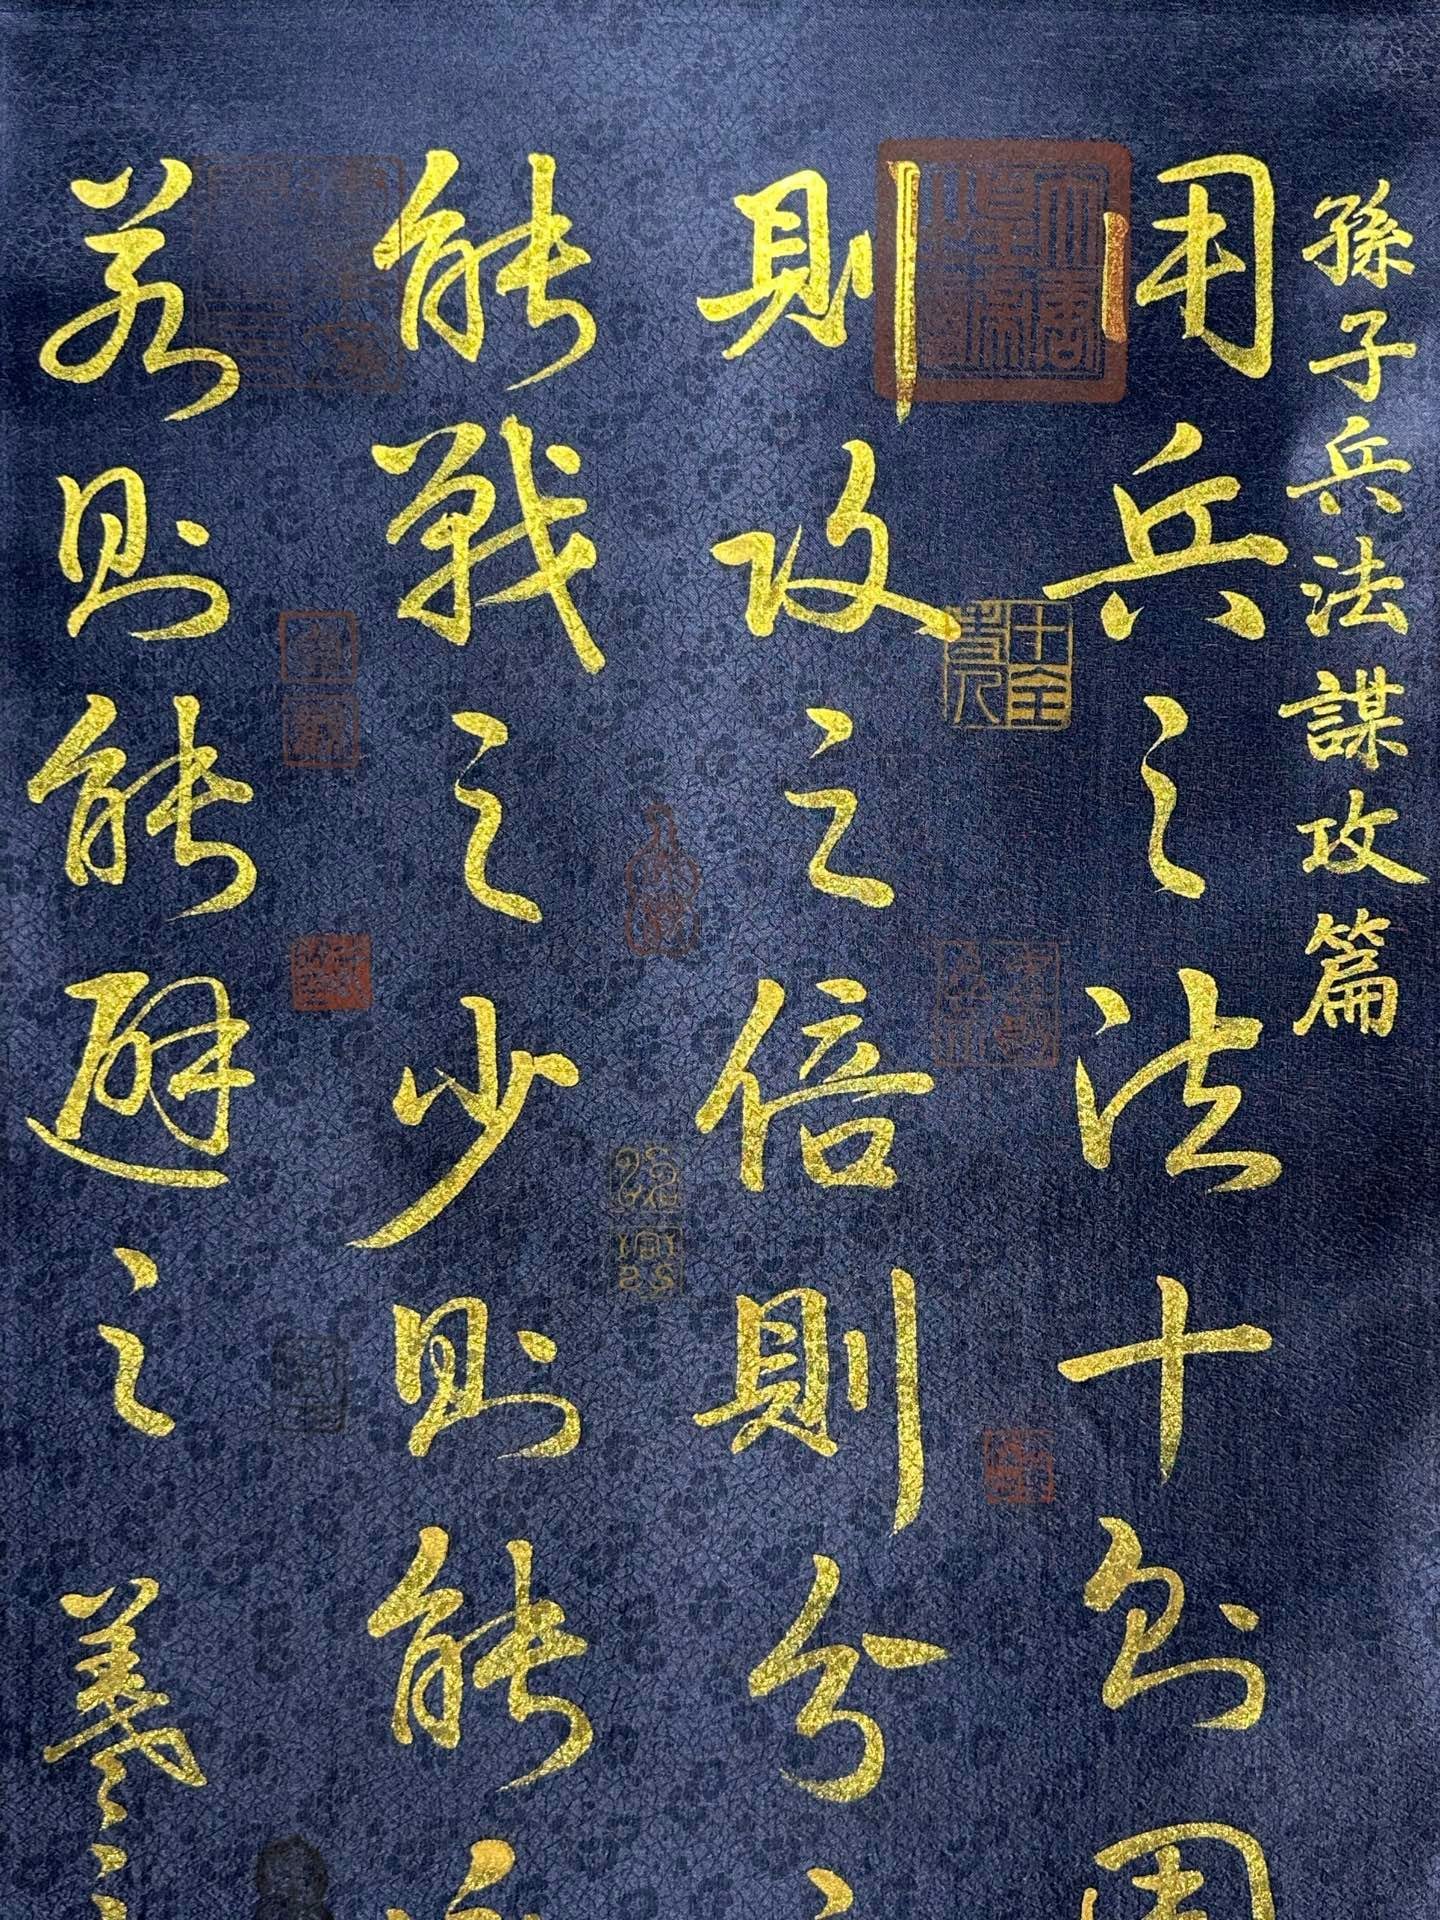 孫子兵法謀攻篇
用兵之法十則
十全老人
則攻之倍則分之
能戰之少則能
若則能避之
羲之